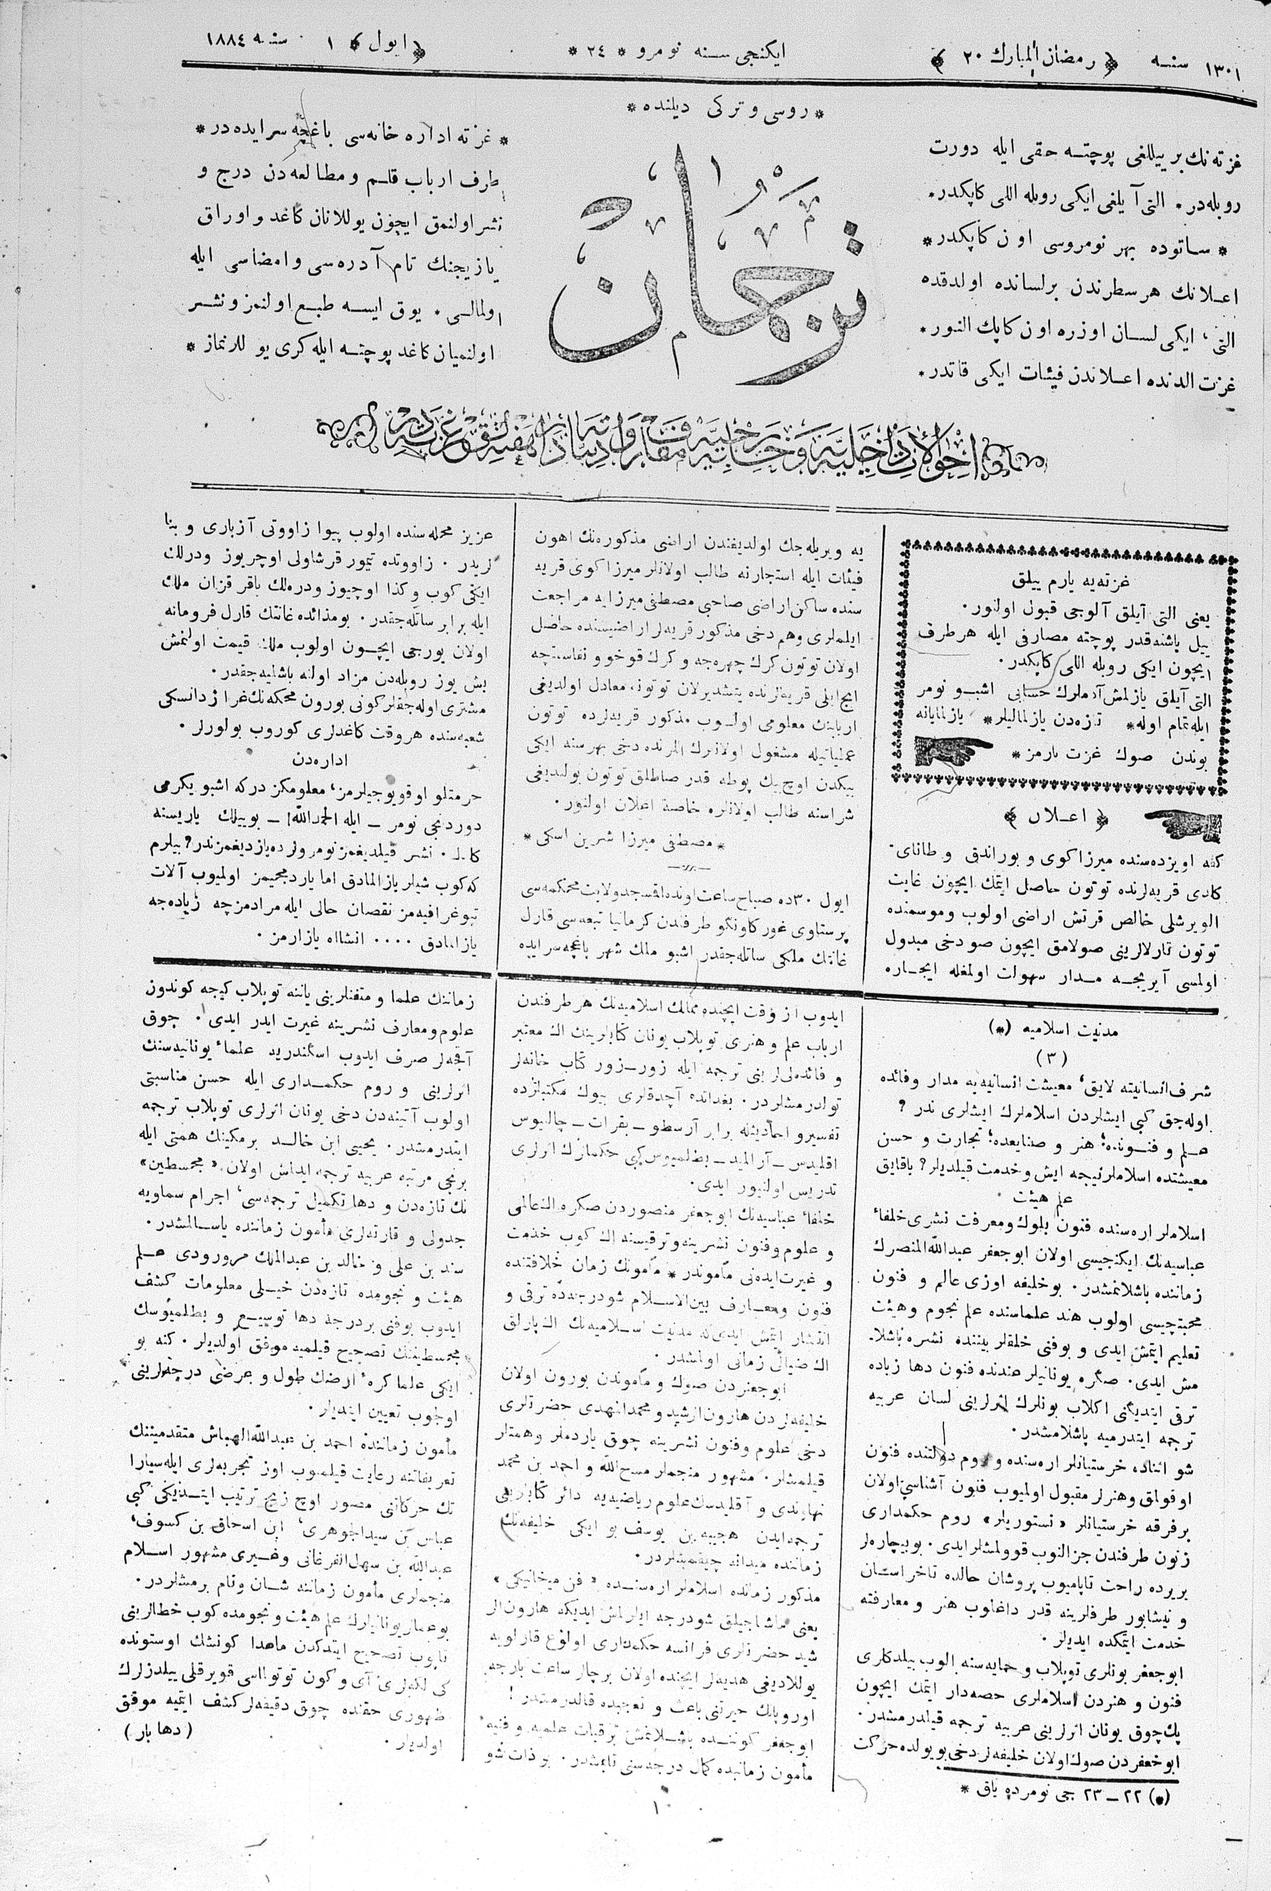 ١٣٠١ سنه ﴿ رمضان المبارك ٢٠ ﴾
ايكنجى سنه نومرو * ٢٤ *
﴿ ايول ﴾ ١ سنه ١٨٨٤
* روسى و تركى ديلنده *
ترجمان
غزته‌نك بر ييللغى پوچته حقى ايله دورت
روبله‌در. التى آيلغى ايكى روبله اللى كاپكدر.
* ساتوده بهر نومروسى اون كاپكدر*
اعلانك هر سطرندن بر لسانده اولدقده
التى، ايكى لسان اوزره اون كاپك النور.
غزت الدنده اعلاندن فيئات ايكى قاتدر.
* غزته اداره خانه‌سى باغچه سرايده‌در *
طرف ارباب قلم و مطالعه‌دن درج و
نشر اولنمق ايچون يوللانان كاغد و اوراق
يازيجنك تام آدره‌سى و امضاسى ايله
اولمالى. يوق ايسه طبع اولنمز و نشر
اولنميان كاغد پوچته ايله كرى يوللانماز *
احوالات داخليه و خارجيه معارف و ادبياته دائر هفته‌لق غزته‌در
غزته‌يه يارم ييلق
يعنى التى آيلق آلوجى قبول اولنور.
ييل باشنه‌قدر پوچته مصارفى ايله هر طرف
ايچون ايكى روبله اللى كاپكدر.
التى آيلق يازلمش آدملرك حسابى اشبو نومر
ايله تمام اوله* تازه‌دن يازلماليلر* يازلمايانه
بوندن صوك غزت بارمز *
﴿ اعلان ﴾
كفه اويزده‌سنده ميرزا كوى و بوراندق و طاناى-
كلدى قريه‌لرنده توتون حاصل ايتمك ايچون غايت
الويرشلى خالص قرتش اراضى اولوب و موسمنده
توتون تارلالرينى صولامق ايچون صو دخى مبذول
اولمسى آيريجه مدار سهولت اولمغله ايجاره
يه ويريله‌جك اولديغندن اراضى مذكوره‌نك اهون
فيئات ايله استجارنه طالب اولانلر ميرزا كوى قريه
سنده ساكن اراضى صاحبى مصطفى ميرزايه مراجعت
ايلملرى وهم دخى مذكور قريه‌لر اراضيسنده حاصل
اولان توتون كرك چهره‌جه و كرك قوخو و نفاستجه
ايج ايلى قريه‌لرنده يتشديرلان توتونه معادل اولديغى
اربابنك معلومى اولوب مذكور قريه‌لرده توتون
عملياتيله مشغول اولانلرك اللرنده دخى بهر سنه ايكى
بيكدن اوچ بيك پوطه قدر صاطلق توتون بولنديغى
شراسنه طالب اولانلره خاصة اعلان اولنور.
*مصطفى ميرزا شرين اسكى *
ايول ٣٠ ده صباح ساعت اونده اقمسجد ولايت محكمه‌سى
پرستاوى غور كاونكو طرفندن كرمانيا تبعه‌سى قارل
غانك ملكى ساتله‌جقدر اشبو ملك شهر باغچه سرايده
عزيز محله‌سنده اولوب پيوا زاووتى آزبارى و بنا
لريدر. زاوونده تيمور قرشاولى اوچريوز ودرلك
ايكى كوب و كذا اوچيوز ودره‌لك باقر قزان ملك
ايله برابر ساتله‌جقدر. بو مذائده غانك قارل فرومانه
اولان بورجى ايچون اولوب ملك قيمت اولنمش
بش يوز روبله‌دن مزاد اولنه باشليه‌جقدر.
مشترى اوله‌جقلر كونى بورون محكمه‌نك غراژدانسكى
شعبه‌سنده هروقت كاغدلرى كوروب بولورلر.
اداره‌دن
حرمتلو اوقويوجيلرمز، معلومكز دركه اشبو يكرمى
دوردنجى نومر ــ ايله الحمدالله! ــ بو ييلك ياريسنه
كلدك. نشر قيلديغمز نومرولرده يازديغمزندر؟ بيلرم
كه كوب شيلر يازالمادق اما يارد‌مجيمز اولميوب آلات
تبوغرافيه‌مز نقصان حالى ايله مرادمزچه زياده‌جه
يازالمادق .... انشااه يازارمز.
مدنيت اسلاميه (*)
(٣)
شرف انسانيته لايق، معيشت انسانيه‌يه مدار و فائده
اوله‌جق كبى ايشلردن اسلاملرك ايشلرى ندر؟
علم و فنونده؛ هنر و صنايعده؛ تجارت و حسن
معيشتده اسلاملر نيجه ايش و خدمت قيلديلر؟ باقايق
علم هيئت.
اسلاملر اره‌سنده فنون بلوك و معرفت نشرى خلفاء
عباسيه‌نك ايكنجيسى اولان ابو جعفر عبدالله المنصرك
زماننده باشلانمشدر. بو خليفه اوزى عالم و فنون
محبتچيسى اولوب هند علماسنده علم نجوم و هيئت
تعليم ايتمش ايدى و بو فنى خلقلر بيننده نشره باشلا-
مش ايدى. صكره يونانيلر عندنده فنون دها زياده
ترقى ايتديكنى اكلاب بونلرك اثرلرينى لسان عربيه
ترجمه ايتدرميه باشلامشدر.
شو اثناده خرستيانلر اره‌سنده و روم دولتنده فنون
اوقولق و هنرلر مقبول اولميوب فنون آشناسى اولان
بر فرقه خرستيانلر «نستوريلر» روم حكمدارى
زنون طرفندن جزالنوب قوولمشلر ايدى. بوبيچاره‌لر
بر يرده راحت تاپاميوب پروشان حالده تاخراستان
و نيشابور طرفلرينه قدر داغلوب هنر و معارفته
خدمت ايتمكده ايديلر.
ابو جعفر بونلرى توپلاب و حمايه‌سنه الوب بيلدكلرى
فنون و هنردن اسلاملرى حصه‌دار ايتمك ايچون
پك چوق يونان اثرلرينى عربيه ترجمه قيلدرمشدر.
ابو جعفردن صوك اولان خليفه‌لر دخى بو يولده حركت
(*) ٢٢ــ٢٣ جى نومرده باق *
ايدوب از وقت ايچنده ممالك اسلاميه‌نك هر طرفندن
ارباب علم و هنرى توپلاب يونان كتابلرينك اك معتبر
و فائده‌لى‌لرينى ترجمه ايله زور ــ زور كتاب خانه‌لر
تولدرمشلردر. بغدادده آچدقلرى بيوك مكتبلرده
تفسير و احاديثله برابر آرسطو ــ بقرات ــ جالينوس
اقليدس ــ آرالميد ــ بطلميوس كبى حكمارك اثرلرى
تدريس اولنيور ايدى.
خلفاء عباسيه‌نك ابو جعفر منصوردن صكره اك عالمى
و علوم و فنون نشرينه و ترقيسنه اك كوب خدمت
و غيرت ايده‌نى مأموندر* مأمونك زمان خلافتنده
فنون و معارف بين الاسلام شو درجه‌ده ترقى و
انتشار ايتمش ايدى كه مدنيت اسلاميه‌نك اك پارلق
اك ضيالى زمانى اولمشدر.
ابو جعفردن صوك و مأموندن بورون اولان
خليفه‌لردن هارون ارشيد و محمد المهدى حضرتلرى
دخى علوم و فنون نشرينه چوق ياردملر و همتلر
قيلمشلر. مشهور منجملر مسح الله و احمد بن محمد
نهاوندى و آقليدسك علوم رياضيه‌يه دائر كتابلرينى
ترجمه‌ايدن هجيبه‌بن يوسف بو ايكى خليفه‌نك
زماننده ميدانه چيقمشلردر.
مذكور زمانده اسلاملر اره‌سنده «فن ميخانيكى»
يعنى ماشناجيلق شودرجه ايلرلمش ايديكه هارون الر
شيد حضرتلرى فرانسه حكمدارى اولوغ قارلويه
يوللاديغى هديه‌لر ايچنده اولان برچالر ساعت بارچه
اوروپانك حيرتنى باعث و تعجبده قالدرمشدر!
ابو جعفر كوننده باشلانمش ترقيات علميه و فنيه
مأمون زمانيده كمال درجه‌سنى تاپمشدر. بو ذات شو
زماننك علما و متفنلرينى ياننه توپلاب كيجه كوندون
علوم و معارف نشرينه غيرت ايدر ايدى. چوق
آقچه‌لر صرف ايدوب اسكندريه علماء يونانيه‌سنك
اثرلرينى و روم حكمدارى ايله حسن مناسبتى
اولوب آتينه‌دن دخى يونان اثرلرى توپلاب ترجمه
ايتدرمشدر. يحيى ابن خالد برمكينك همتى ايله
برنجى مرتبه عربيه ترجمه ايدلمش اولان «مجمسطين»
نك تازه‌دن و دها تكميل ترجمه‌سى، اجرام سماويه
جدولى و قارته‌لرى مأمون زماننده ياسالمشدر.
سند بن على و خالد بن عبدالملك مرورودى علم
هيئت و نجومده تازه‌دن خيلى معلومات كشف
ايدوب بو فنى بر درجه دها توسيع و بطلميوسك
مجمسطيننك تصحيح قيلميه موفق اولديلر. كنه بو
ايكى علما كره، ارضك طول و عرضى درجه‌لرينى
اوجوب تعيين ايتديلر.
مأمون زماننده احمد بن عبدالله الهباش متقدميننك
تعريفاتنه رعايت قيلميوب اوز تجربه‌لرى ايله سيارا
تك حركاتنى مصور اوچ زيج ترتيب ايتديكى كبى
عباس بن سيد الجوهرى، ابن اسحاق بن كسوف،
عبدالله بن سهل الفرغانى و غيرى مشهور اسلام
منجملرى مأمون زماننه شان و نام برمشلردر.
بو علمار يونانيلرك علم هيئت و نجومده كوب خطالرينى
تاپوب تصحيح ايتدكدن ماعدا كونشك اوستونده
كى لكه‌لرى، آى و كون توتولماسى قويرقلى ييلدزلرك
ظهورى حقنده چوق دقيقه‌لر كشف ايتميه موفق
اولديلر. (دها بار)